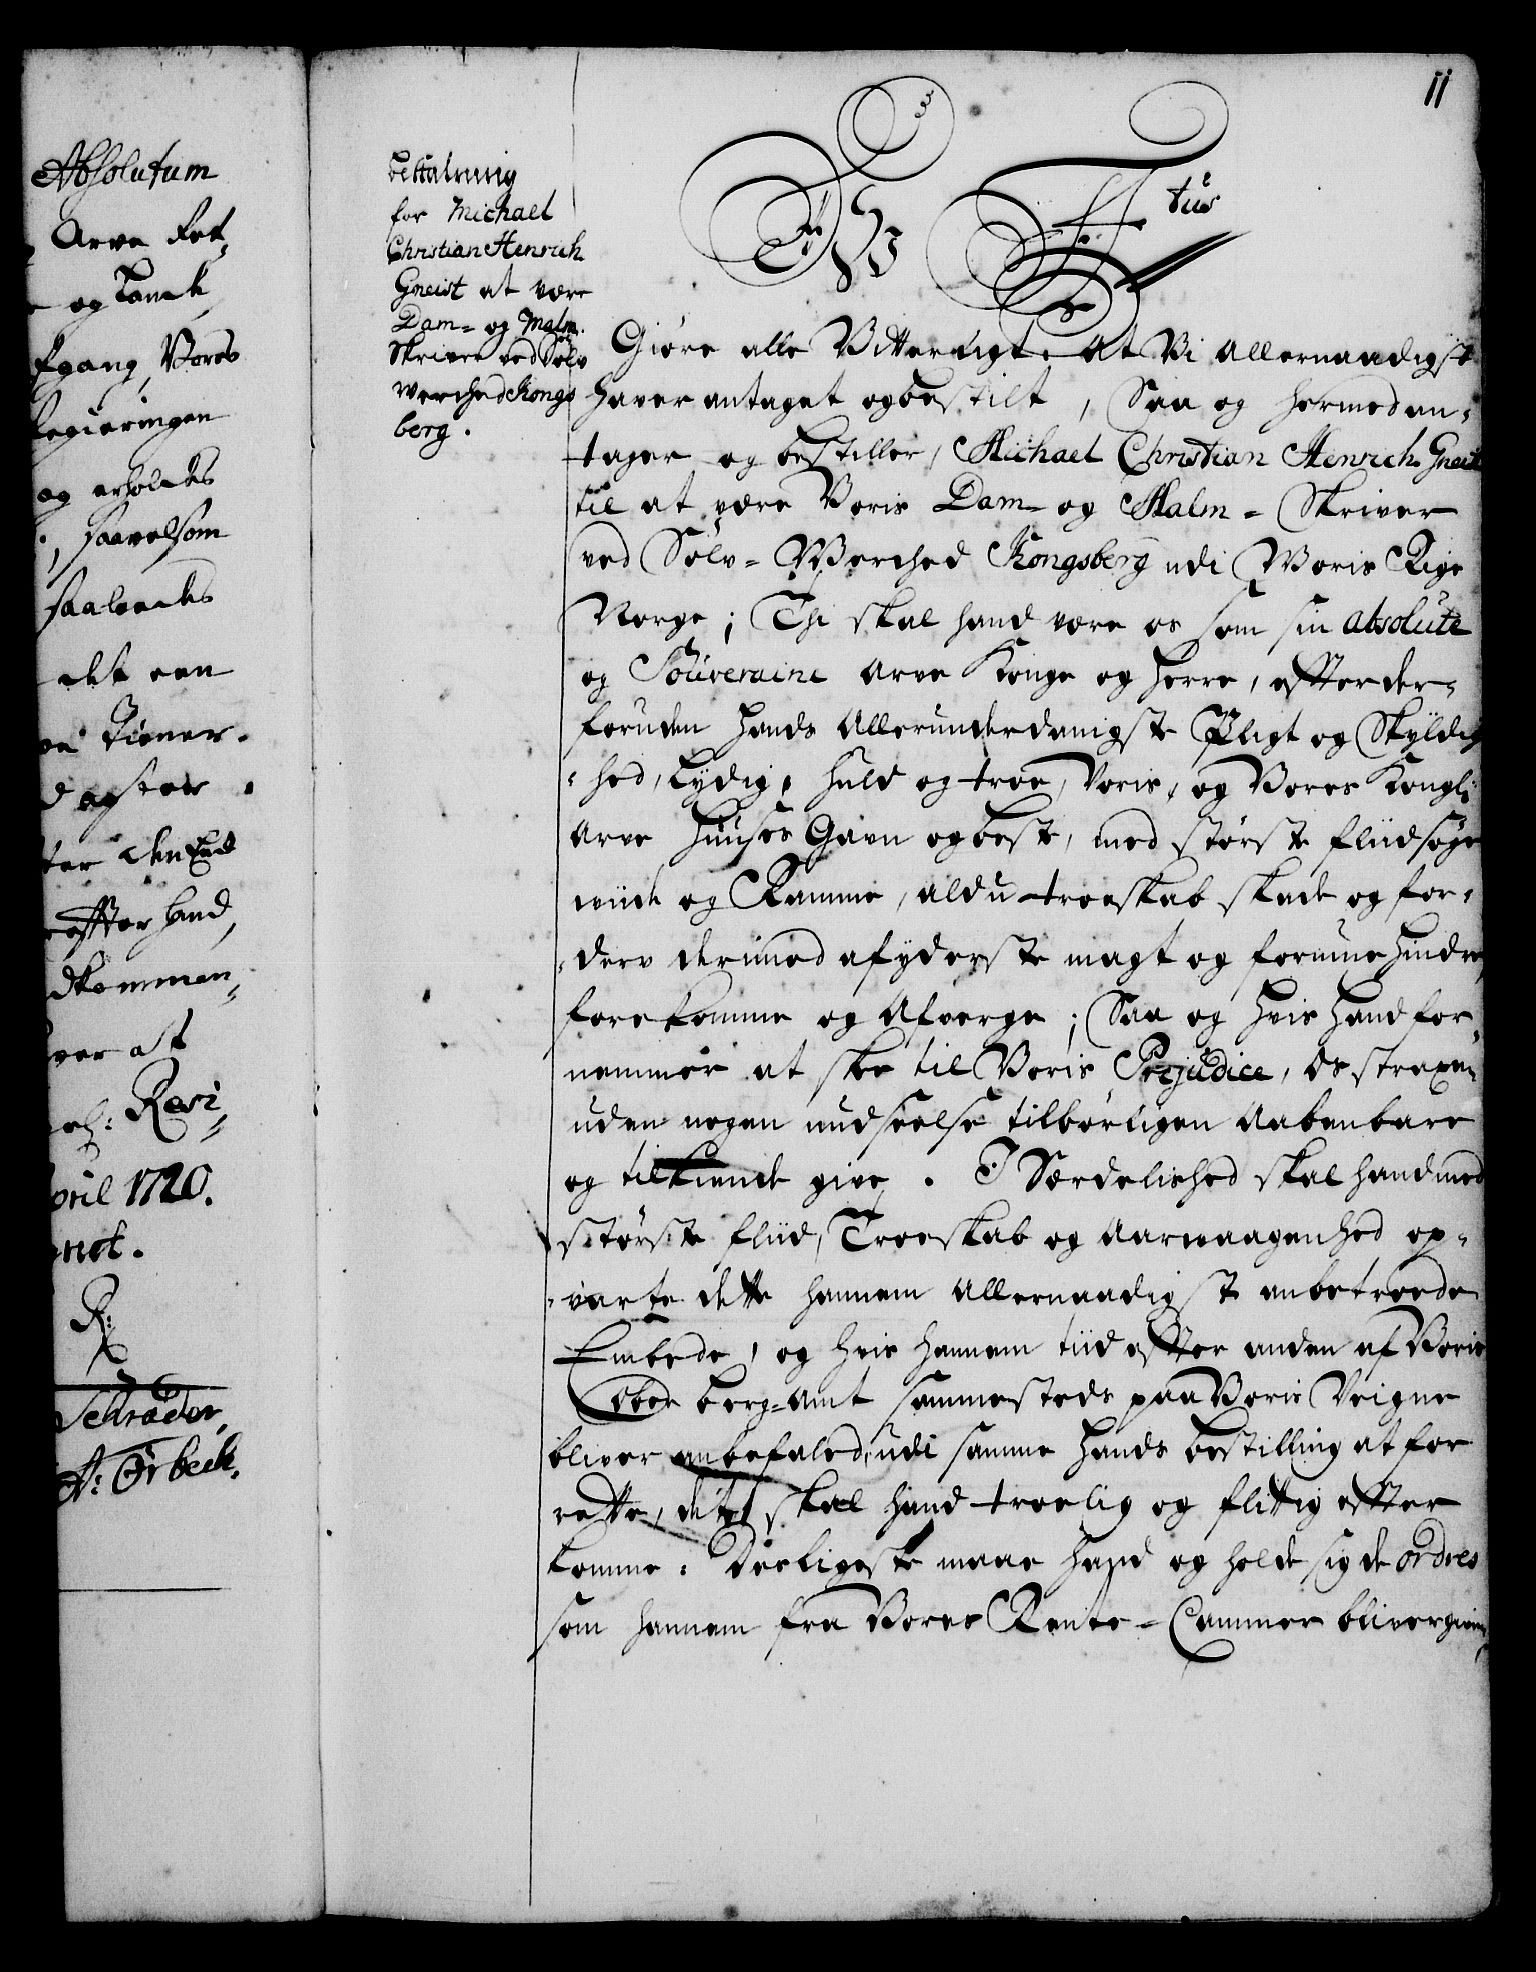 11
Absolutum
Arve Ret-
og Tanck,
fgang, Vores
Regieringen
og erholdes
, saavelsom
saaledes
det een
Tiener.
d ogster.
ter den Eed
effter haand,
dkommen,
ver at
Revi,
pril 1720.
R:
Schrader,
A: Ørbeck.
bestalning
for Michael
Christian Henrich
Gneist at være
Dam- og Malm-
Skriver ved Sølv
Werched Kongs
berg.
F 4 tus
Giøre alle Vitterligt. At Vi Allernaadigst
haver antaget og bestilt, Saa og hermed an-
tager og bestiller, Michael Christian Henrich Gneist
til at være Voris Dam- og Malm- Skriver
ved Sølv- Werched Kongsberg udi Voris Rige
Norge; Thi skal hand være os som sin absolute
og Souveraine Arve Konge og Herre, effter der-
foruden hands Allerunderdanigste Pligt og Skyldig
-hed, Lydig, huld og troe, Voris, og Vores Kongl:
Arve Huuses Gavn og beste, med største fliid søge
viide og Ramme, ald u-troeskab skade og for-
-derv derimod af yderste magt og formue hindre,
forekomme og Afverge; Saa og hvis hand for-
nemmer at skee til Voris Præjudice, Os straxen
uden nogen undseelse tilbørligen Aabenbare
og tilkiende give. I Særdelished skal hand med
største fliid, Troeskab og Aarvaagenhed op-
-varte dette hannem Allernaadigst anbetroede
Embede, og hvis hannem tiid effter anden af Voris
Ober berg-Amt sammesteds paa Voris Veigne
bliver anbefaled, udi samme hands bestilling at for
rette, det skal hand troelig og flittig effter
komme. Desligeste maae hand og holde sig de ordres
som hannem fra Vores Rente- Cammer bliver given,